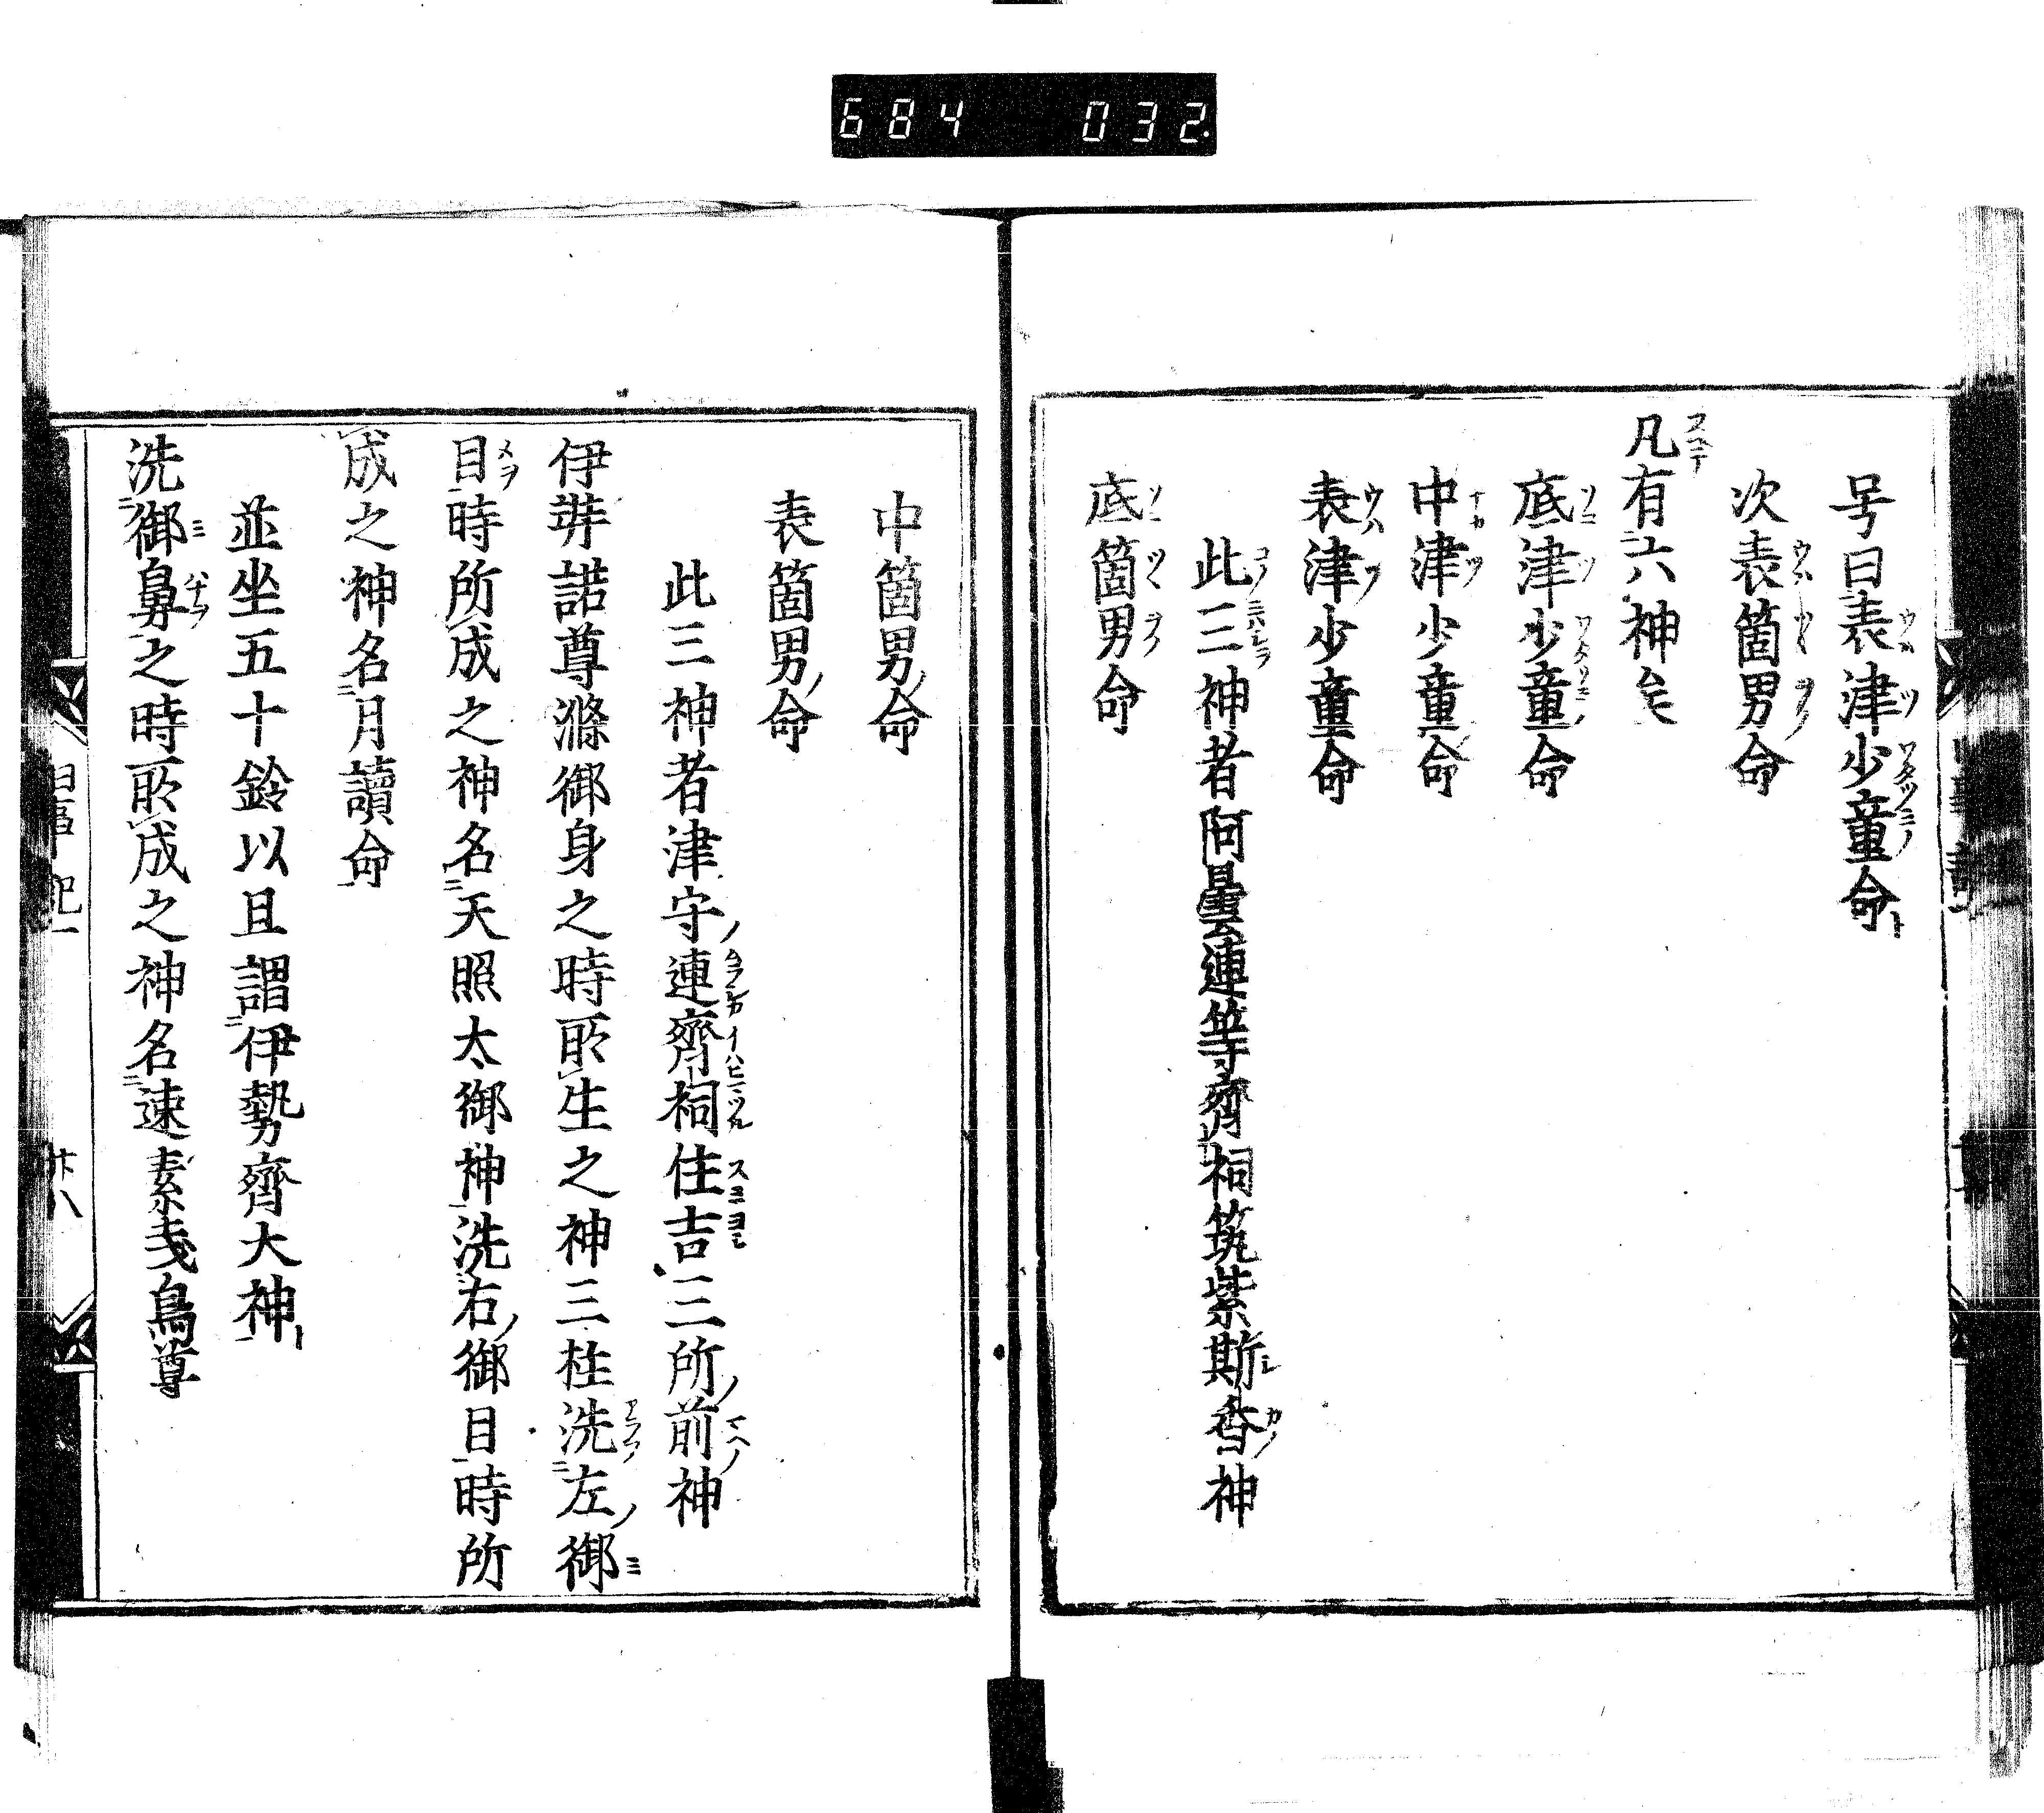 684 032
号曰表津少童命
次表箇男命
凡有六神矣
底津少童命
中津少童命
表津少童命
此三神者阿曇連等齊祠筑紫斯香神
底箇男命
中箇男命
表箇男命
此三神者津守連齊祠住吉三所前神
伊弉諾尊滌御身之時所生之神三柱洗左御
目時所成之神名天照太御神洗右御目時所
成之神名月讀命
並坐五十鈴以且謂伊勢齊大神
洗御鼻之時所成之神名速素戔烏尊